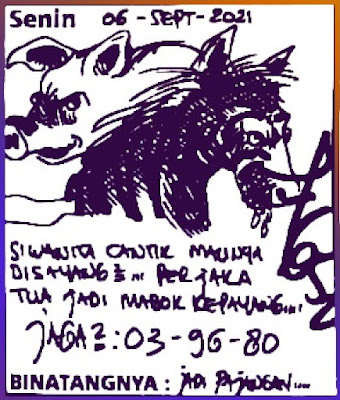 Senin 06-SEPT-2021
SIWANITA CANTIK MAUNYA
DISAYANG2... PERJAKA
TUA JADI MABOK KEPAYANG....
JAGA2: 03-96-80
BINATANGNYA : JADI PAJANGAN....